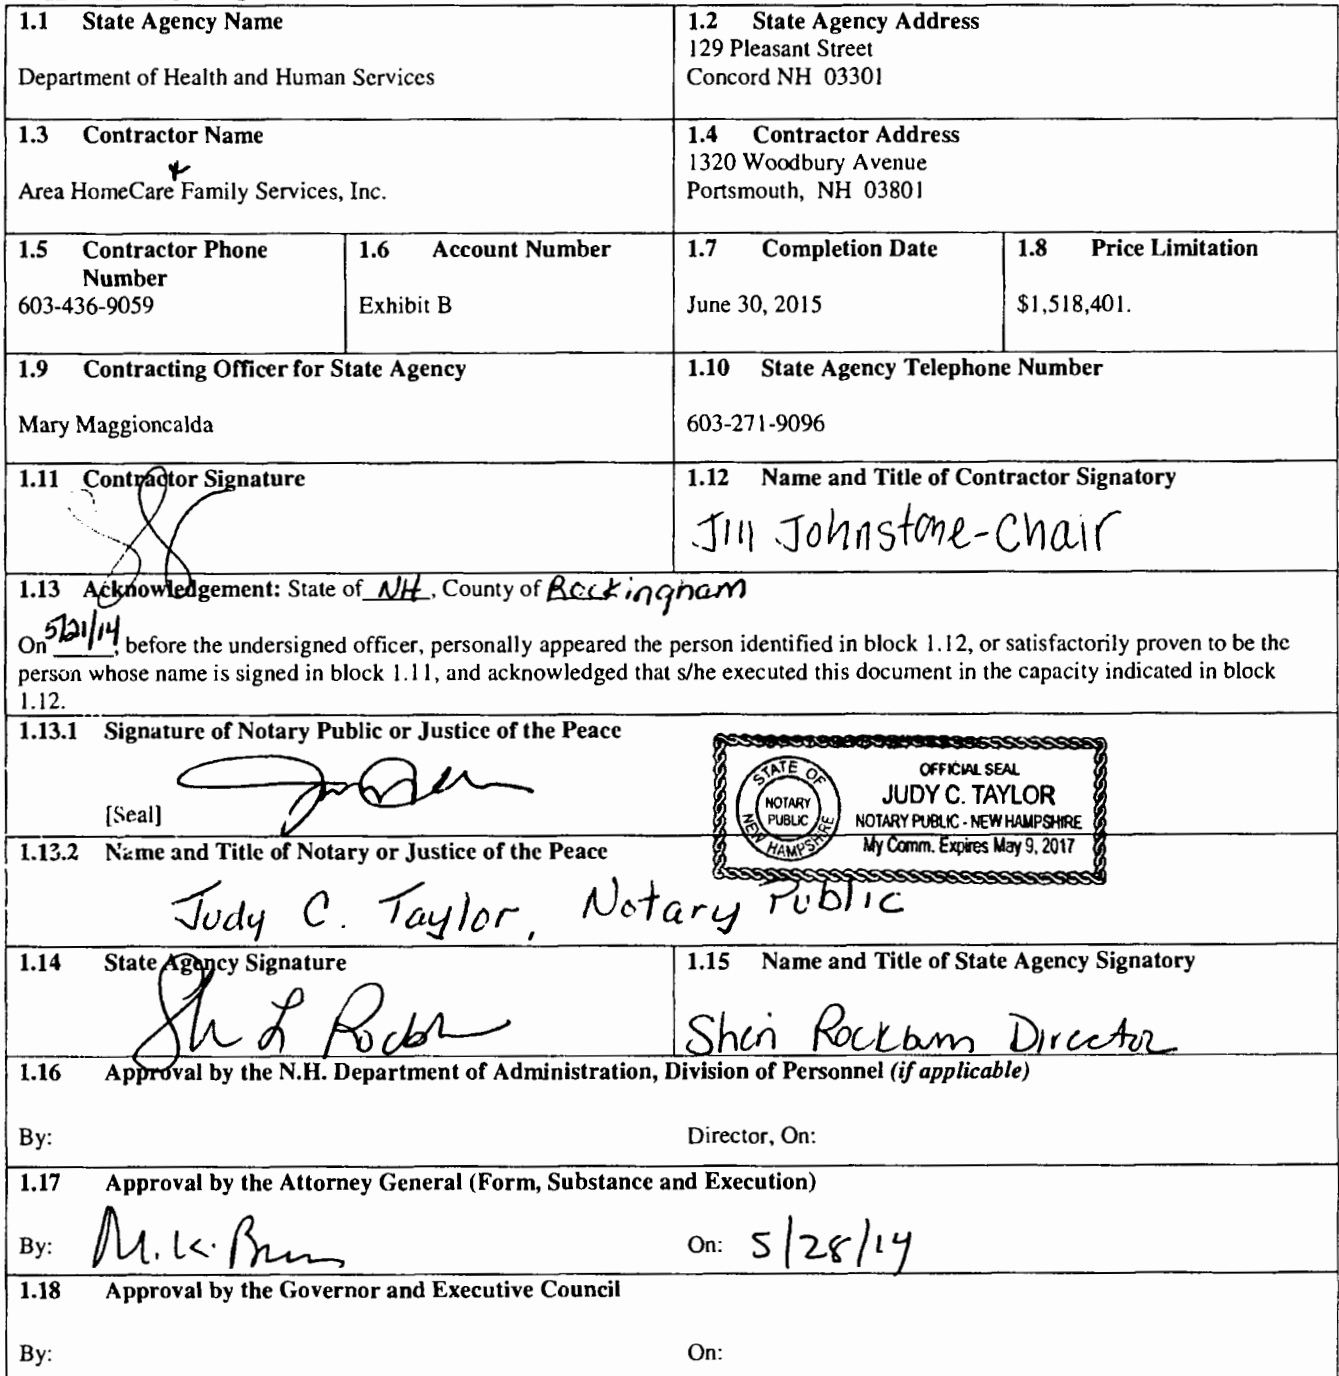 1.1 State Agency Name
Department of Health and Human Services
1.2 State Agency Address
129 Pleasant Street
Concord NH 03301
1.3 Contractor Name
&
Area HomeCare Family Services, Inc.
1.4 Contractor Address
1320 Woodbury Avenue
Portsmouth, NH 03801
1.5 Contractor Phone
Number
603-436-9059
1.6 Account Number
Exhibit B
1.7 Completion Date
June 30, 2015
1.8 Price Limitation
$1,518,401.
1.9 Contracting Officer for State Agency
Mary Maggioncalda
1.10 State Agency Telephone Number
603-271-9096
1.11 Contractor Signature
1.12 Name and Title of Contractor Signatory
Jill Johnstone-Chair
1.13 Acknowledgement: State of NH, County of Rockingham
On 5/21/14, before the undersigned officer, personally appeared the person identified in block 1.12, or satisfactorily proven to be the
person whose name is signed in block 1.11, and acknowledged that s/he executed this document in the capacity indicated in block
1.12.
1.13.1 Signature of Notary Public or Justice of the Peace
[Seal]
STATE OF
NOTARY
PUBLIC
NEW HAMPSHIRE
OFFICIAL SEAL
JUDY C. TAYLOR
NOTARY PUBLIC - NEW HAMPSHIRE
My Comm. Expires May 9, 2017
1.13.2 Name and Title of Notary or Justice of the Peace
Judy C. Taylor, Notary Public
1.14 State Agency Signature
1.15 Name and Title of State Agency Signatory
Sheri Rockburn Director
1.16 Approval by the N.H. Department of Administration, Division of Personnel (if applicable)
By:
Director, On:
1.17 Approval by the Attorney General (Form, Substance and Execution)
By: M.K.
On: 5/28/14
1.18 Approval by the Governor and Executive Council
By:
On: